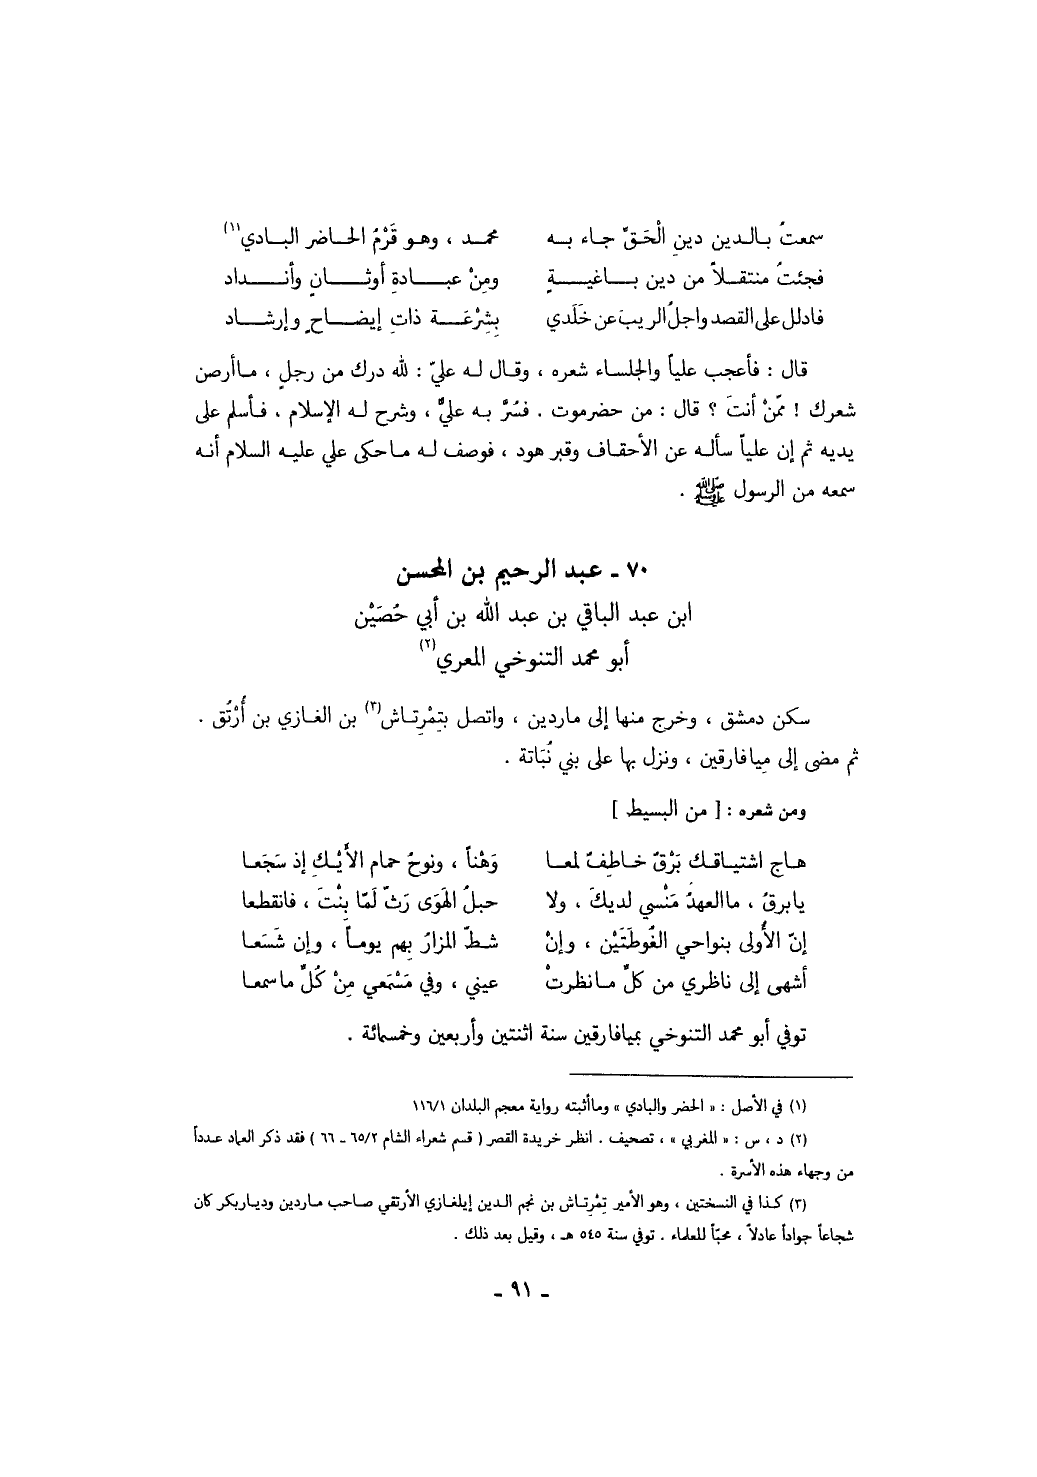 سمعتُ بالدين دينِ الْحَقِّ جاء به محمد ، وهو قَرْمُ الحاضر البادي(١)
فجئتُ منتقلاً من دين باغيةٍ ومِنْ عبادةِ أوثانٍ وأنداد
فادلل على القصد واجلُ الريبَ عن خَلَدي بِشِرْعَة ذاتِ إيضاحٍ وإرشاد
قال : فأعجب علياً والجلساء شعره ، وقال له عليّ : لله درك من رجلٍ ، ماأرصن
شعرك ! ممّنْ أنتَ ؟ قال : من حضرموت . فسُرَّ به عليٌّ ، وشرح له الإسلام ، فأسلم على
يديه ثم إن علياً سأله عن الأحقاف وقبر هود ، فوصف له ماحكى علي عليه السلام أنه
سمعه من الرسول ﷺ .
٧٠ ـ عبد الرحيم بن المحسن
ابن عبد الباقي بن عبد الله بن أبي حُصَيْن
أبو محمد التنوخي المعري(٢)
سكن دمشق ، وخرج منها إلى ماردين ، واتصل بتِمْرِتاش(٣) بن الغازي بن أُرْتُق .
ثم مضى إلى مِيافارقين ، ونزل بها على بني نُبَاتة .
ومن شعره : [ من البسيط ]
هاج اشتياقك بَرْقٌ خاطِفٌ لمعا وَهْناً ، ونوحُ حمام الأَيْكِ إذ سَجَعا
يابرقُ ، ماالعهدُ مَنْسي لديكَ ، ولا حبلُ الهَوَى رَثّ لَمّا بِنْتَ ، فانقطعا
إنّ الأُولى بنواحي الغُوطَتَيْن ، وإنْ شطّ المزارُ بِهم يوماً ، وإن شَسَعا
أشهى إلى ناظري من كلِّ مانظرتْ عيني ، وفي مَسْمَعي مِنْ كُلِّ ماسمعا
توفي أبو محمد التنوخي بميافارقين سنة اثنتين وأربعين وخمسمائة .
(١) في الأصل : « الحضر والبادي » وماأثبته رواية معجم البلدان ١١٦/١
(٢) د ، س : « المغربي » ، تصحيف . انظر خريدة القصر ( قسم شعراء الشام ٦٥/٢ ـ ٦٦ ) فقد ذكر العماد عدداً
من وجهاء هذه الأسرة .
(٣) كذا في النسختين ، وهو الأمير تِمْرِتاش بن نجم الدين إيلغازي الأرتقي صاحب ماردين ودياربكر كان
شجاعاً جواداً عادلاً ، محبّاً للعلماء . توفي سنة ٥٤٥ هـ ، وقيل بعد ذلك .
ـ ٩١ ـ